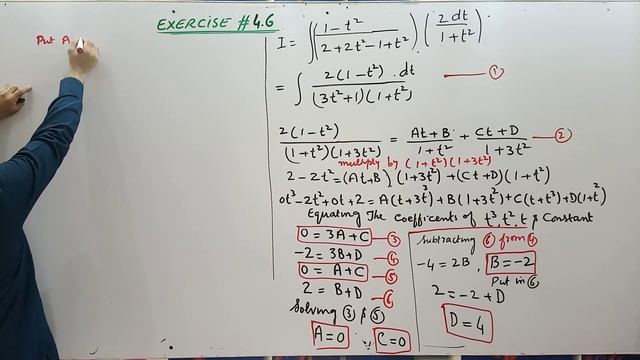 EXERCISE # 4.6
Put A
I = ∫ ((1-t²)/(2+2t²-1+t²)) (2dt/(1+t²))
= ∫ 2(1-t²) . dt/((3t²+1)(1+t²)) — ①
2(1-t²)/((1+t²)(1+3t²)) = (At+B)/(1+t²) + (Ct+D)/(1+3t²) — ②
multiply by (1+t²)(1+3t²)
2-2t² = (At+B)(1+3t²)+(Ct+D)(1+t²)
0t³-2t²+0t+2 = A(t+3t³)+B(1+3t²)+C(t+t³)+D(1+t²)
Equating The Coefficents of t³, t², t & Constant
0 = 3A+C — ③
-2 = 3B+D — ④
0 = A+C — ⑤
2 = B+D — ⑥
Solving ③ & ⑤
A=0 , C=0
Subtracting ⑥ from ④
-4 = 2B , B=-2
Put in ⑥
2 = -2+D
D=4